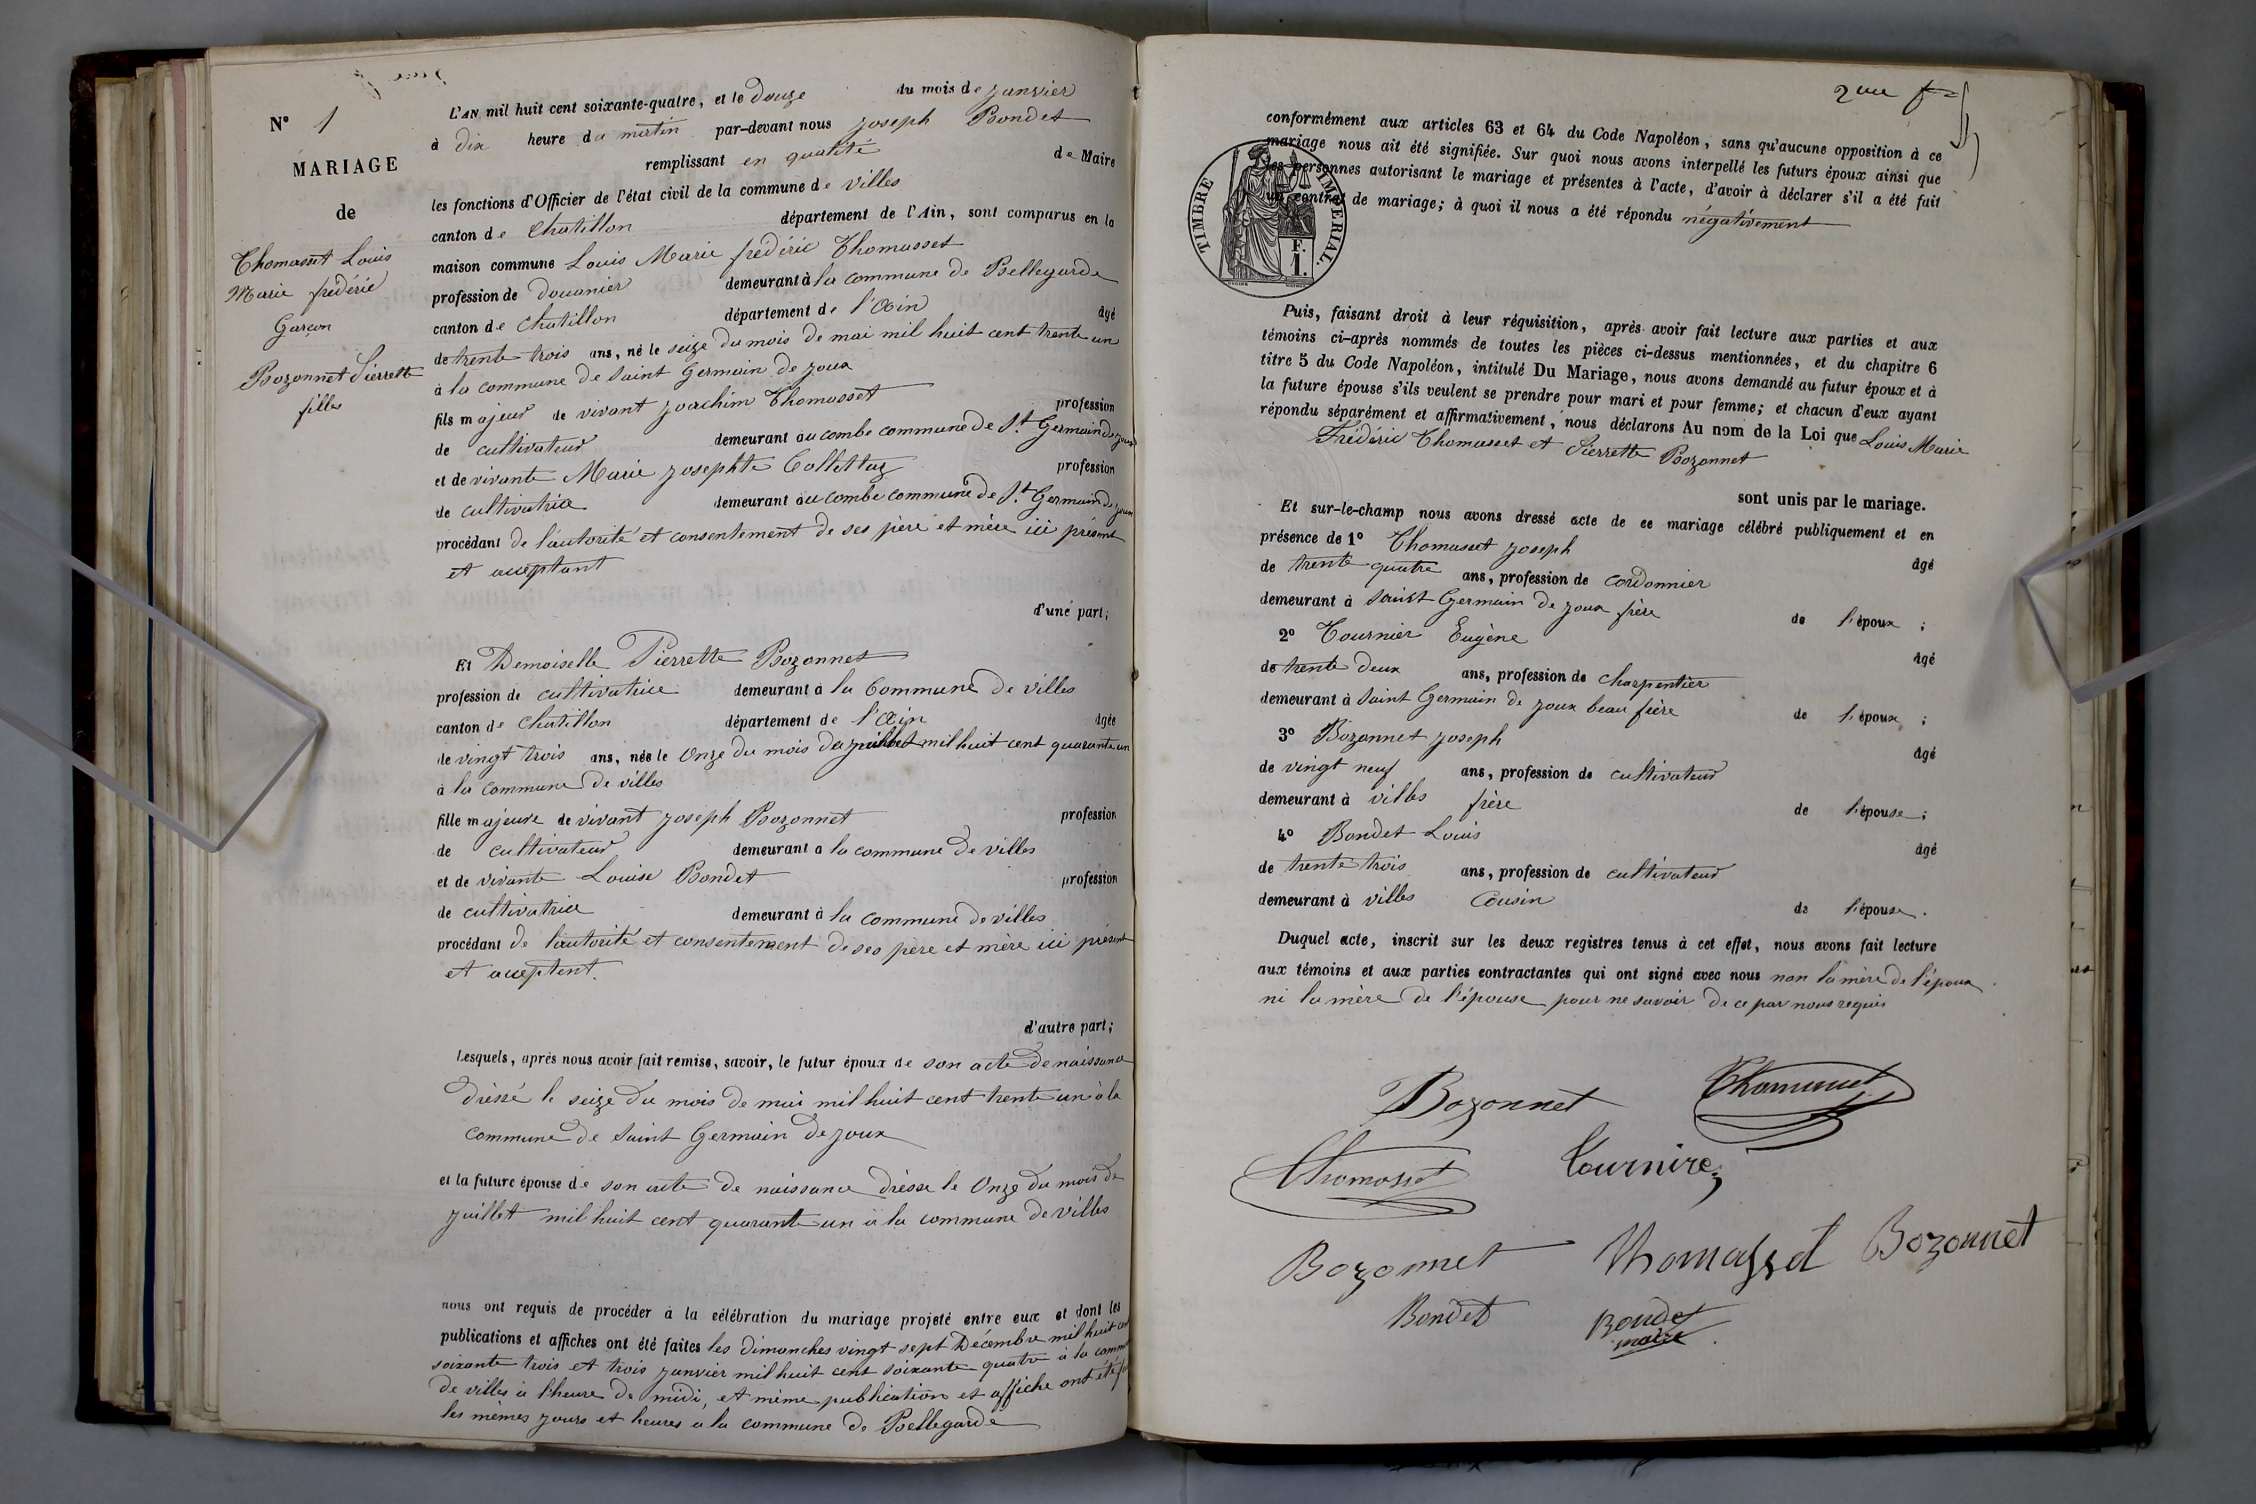 N° 1
MARIAGE
de
Thomasset Louis
Marie frédéric
Garçon
Bozonnet Pierrette
filles
L'AN mil huit cent soixante-quatre, et le Douze du mois de janvier
à dix heure du matin par-devant nous joseph Bondet
remplissant en qualité de Maire
les fonctions d'Officier de l'état civil de la commune de villes
canton de Chatillon département de l'Ain, sont comparus en la
maison commune Louis Marie frédéric Thomasset
profession de douanier demeurant à la commune de Bellegarde
canton de Chatillon département de l'Ain âgé
de trente trois ans, né le seize du mois de mai mil huit cent trente un
à la commune de Saint Germain de joux
fils majeur de vivant joachim Thomasset profession
de cultivateur demeurant au combe commune de St Germain de joux
et de vivante Marie josephte Collettaz profession
de cultivatrice demeurant au combe commune de St Germain de joux
procédant de l'autorité et consentement de ses père et mère ici présent
et acceptant
d'une part;
Et Demoiselle Pierrette Bozonnet
profession de cultivatrice demeurant à la Commune de villes
canton de Chatillon département de l'Ain âgée
de vingt trois ans, née le Onze du mois de juillet mil huit cent quarante un
à la commune de villes
fille majeure de vivant joseph Bozonnet profession
de cultivateur demeurant a la commune de villes
et de vivante Louise Bondet profession
de cultivatrice demeurant à la commune de villes
procédant de l'autorité et consentement de ses père et mère ici présent
et acceptent.
d'autre part;
Lesquels, après nous avoir fait remise, savoir, le futur époux de son acte de naissance
dréssé le seize du mois de mai mil huit cent trente un à la
commune de Saint Germain de joux
et la future épouse de son acte de naissance dréssé le Onze du mois de
juillet mil huit cent quarante un à la commune de villes
nous ont requis de procéder à la célébration du mariage projeté entre eux et dont les
publications et affiches ont été faites les dimanches vingt sept Décembre mil huit
soixante trois et trois janvier mil huit cent soixante quatre à la
de villes à l'heure de midi, et même publication et affiche ont été
les mêmes jours et heures a la commune de Bellegarde
conformément aux articles 63 et 64 du Code Napoléon, sans qu'aucune opposition à ce
mariage nous ait été signifiée. Sur quoi nous avons interpellé les futurs époux ainsi que
les personnes autorisant le mariage et présentes à l'acte, d'avoir à déclarer s'il a été fait
un contrat de mariage; à quoi il nous a été répondu négativement
TIMBRE IMPERIAL.
F.
1.
Puis, faisant droit à leur réquisition, après avoir fait lecture aux parties et aux
témoins ci-après nommés de toutes les pièces ci-dessus mentionnées, et du chapitre 6
titre 5 du Code Napoléon, intitulé Du Mariage, nous avons demandé au futur époux et à
la future épouse s'ils veulent se prendre pour mari et pour femme; et chacun d'eux ayant
répondu séparément et affirmativement, nous déclarons Au nom de la Loi que Louis Marie
Frédéric Thomasset et Pierrette Bozonnet
sont unis par le mariage.
Et sur-le-champ nous avons dressé acte de ce mariage célébré publiquement et en
présence de 1° Thomasset joseph âgé
de trente quatre ans, profession de cordonnier
demeurant à Saint Germain de joux frère de l'époux ;
2° Tournier Eugène âgé
de trente deux ans, profession de charpentier
demeurant à Saint Germain de joux beau frère de l'époux ;
3° Bozonnet joseph âgé
de vingt neuf ans, profession de cultivateur
demeurant à villes frère de l'épouse ;
4° Bondet Louis âgé
de trente trois ans, profession de cultivateur
demeurant à villes Cousin de l'épouse.
Duquel acte, inscrit sur les deux registres tenus à cet effet, nous avons fait lecture
aux témoins et aux parties contractantes qui ont signé avec nous non la mère de l'époux
ni la mère de l'épouse pour ne savoir de ce par nous requis
Bozonnet Thomasset
Thomasset Tournire
Bozonnet Thomasset Bozonnet
Bondet Bondet
maire